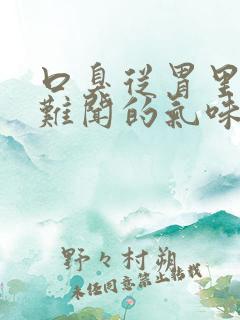 口臭從胃里
難聞的氣味
野々村朔
未經同意禁止轉載